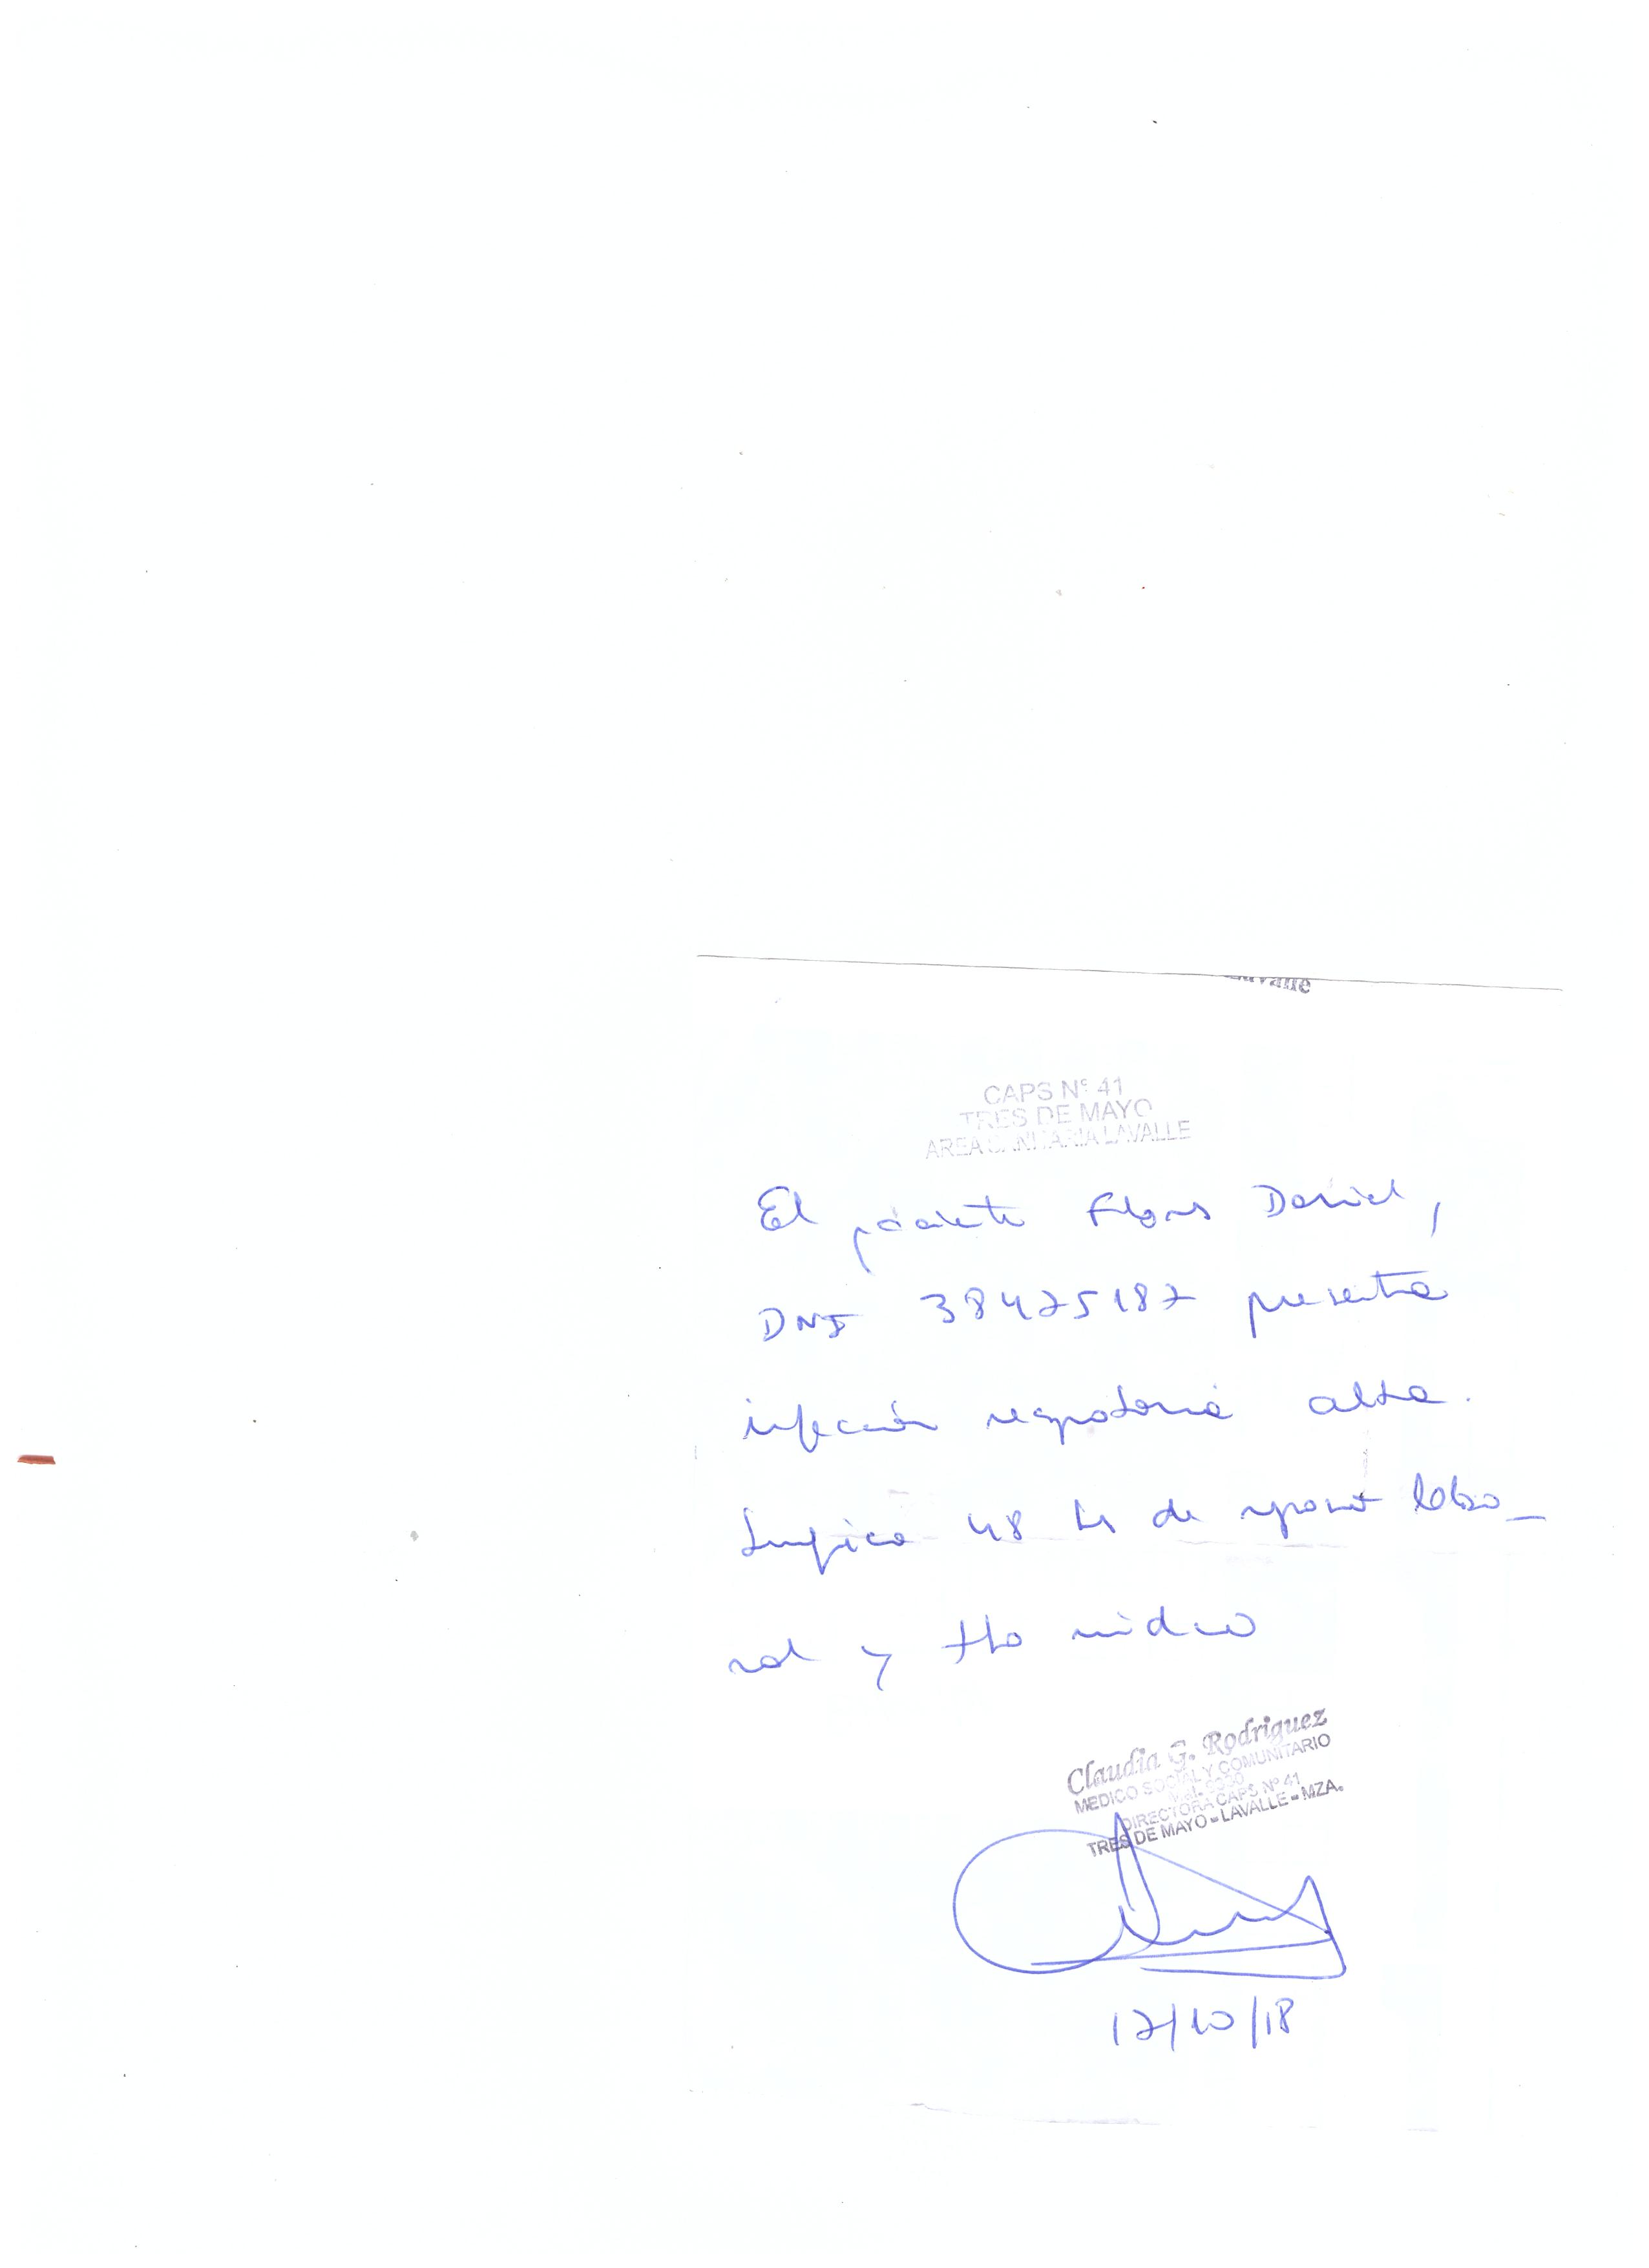 CAPS Nº 41
TRES DE MAYO
AREA SANITARIA LAVALLE
El paciente Flores Daniel,
DNI 38475187 presenta
infección respiratoria alta.
48 hs de reposo labo-
ral y tto médico
Claudia G. Rodriguez
MEDICO SOCIAL Y COMUNITARIO
DIRECTORA CAPS Nº 41
TRES DE MAYO - LAVALLE - MZA.
17/10/18